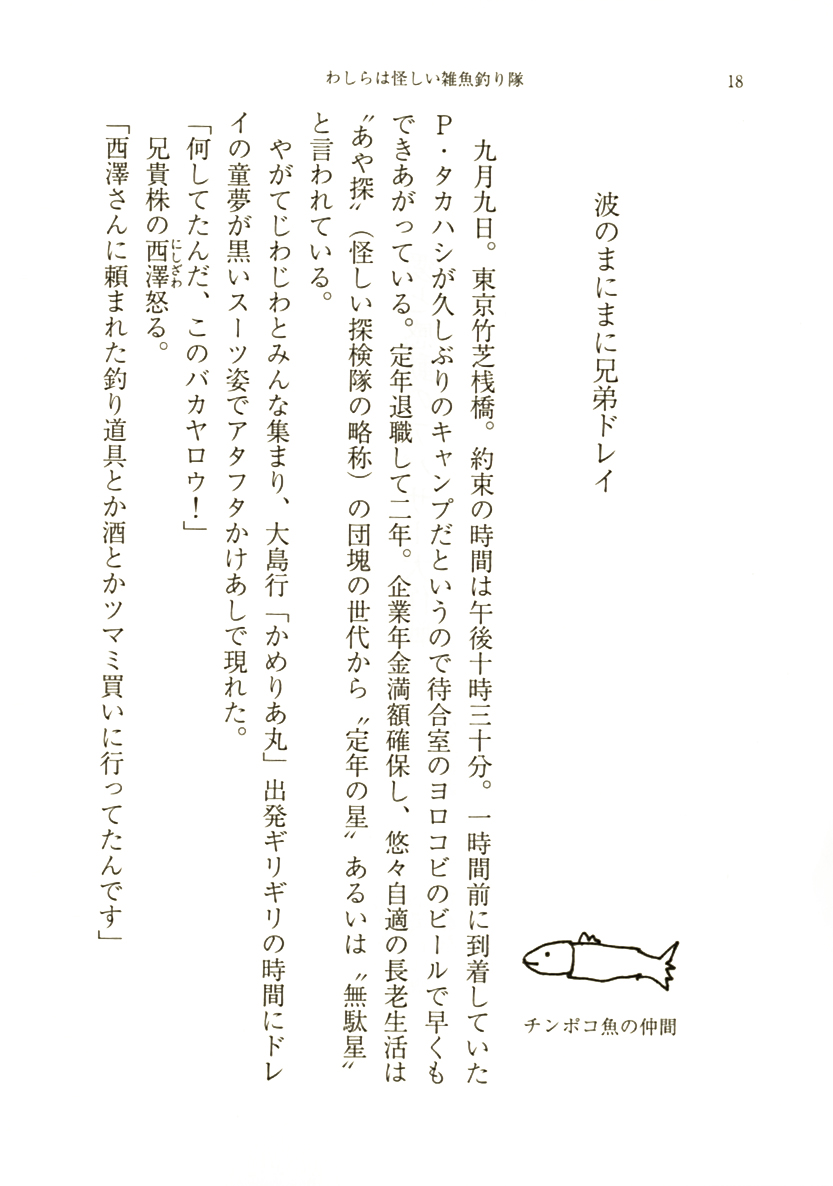 わしらは怪しい雑魚釣り隊
18
波のまにまに兄弟ドレイ
チンポコ魚の仲間
九月九日。東京竹芝桟橋。約束の時間は午後十時三十分。一時間前に到着していた
P・タカハシが久しぶりのキャンプだというので待合室のヨロコビのビールで早くも
できあがっている。定年退職して二年。企業年金満額確保し、悠々自適の長老生活は
〝あや探〟（怪しい探検隊の略称）の団塊の世代から〝定年の星〟あるいは〝無駄星〟
と言われている。
やがてじわじわとみんな集まり、大島行「かめりあ丸」出発ギリギリの時間にドレ
イの童夢が黒いスーツ姿でアタフタかけあしで現れた。
「何してたんだ、このバカヤロウ！」
兄貴株の西澤怒る。
にしざわ
「西澤さんに頼まれた釣り道具とか酒とかツマミ買いに行ってたんです」